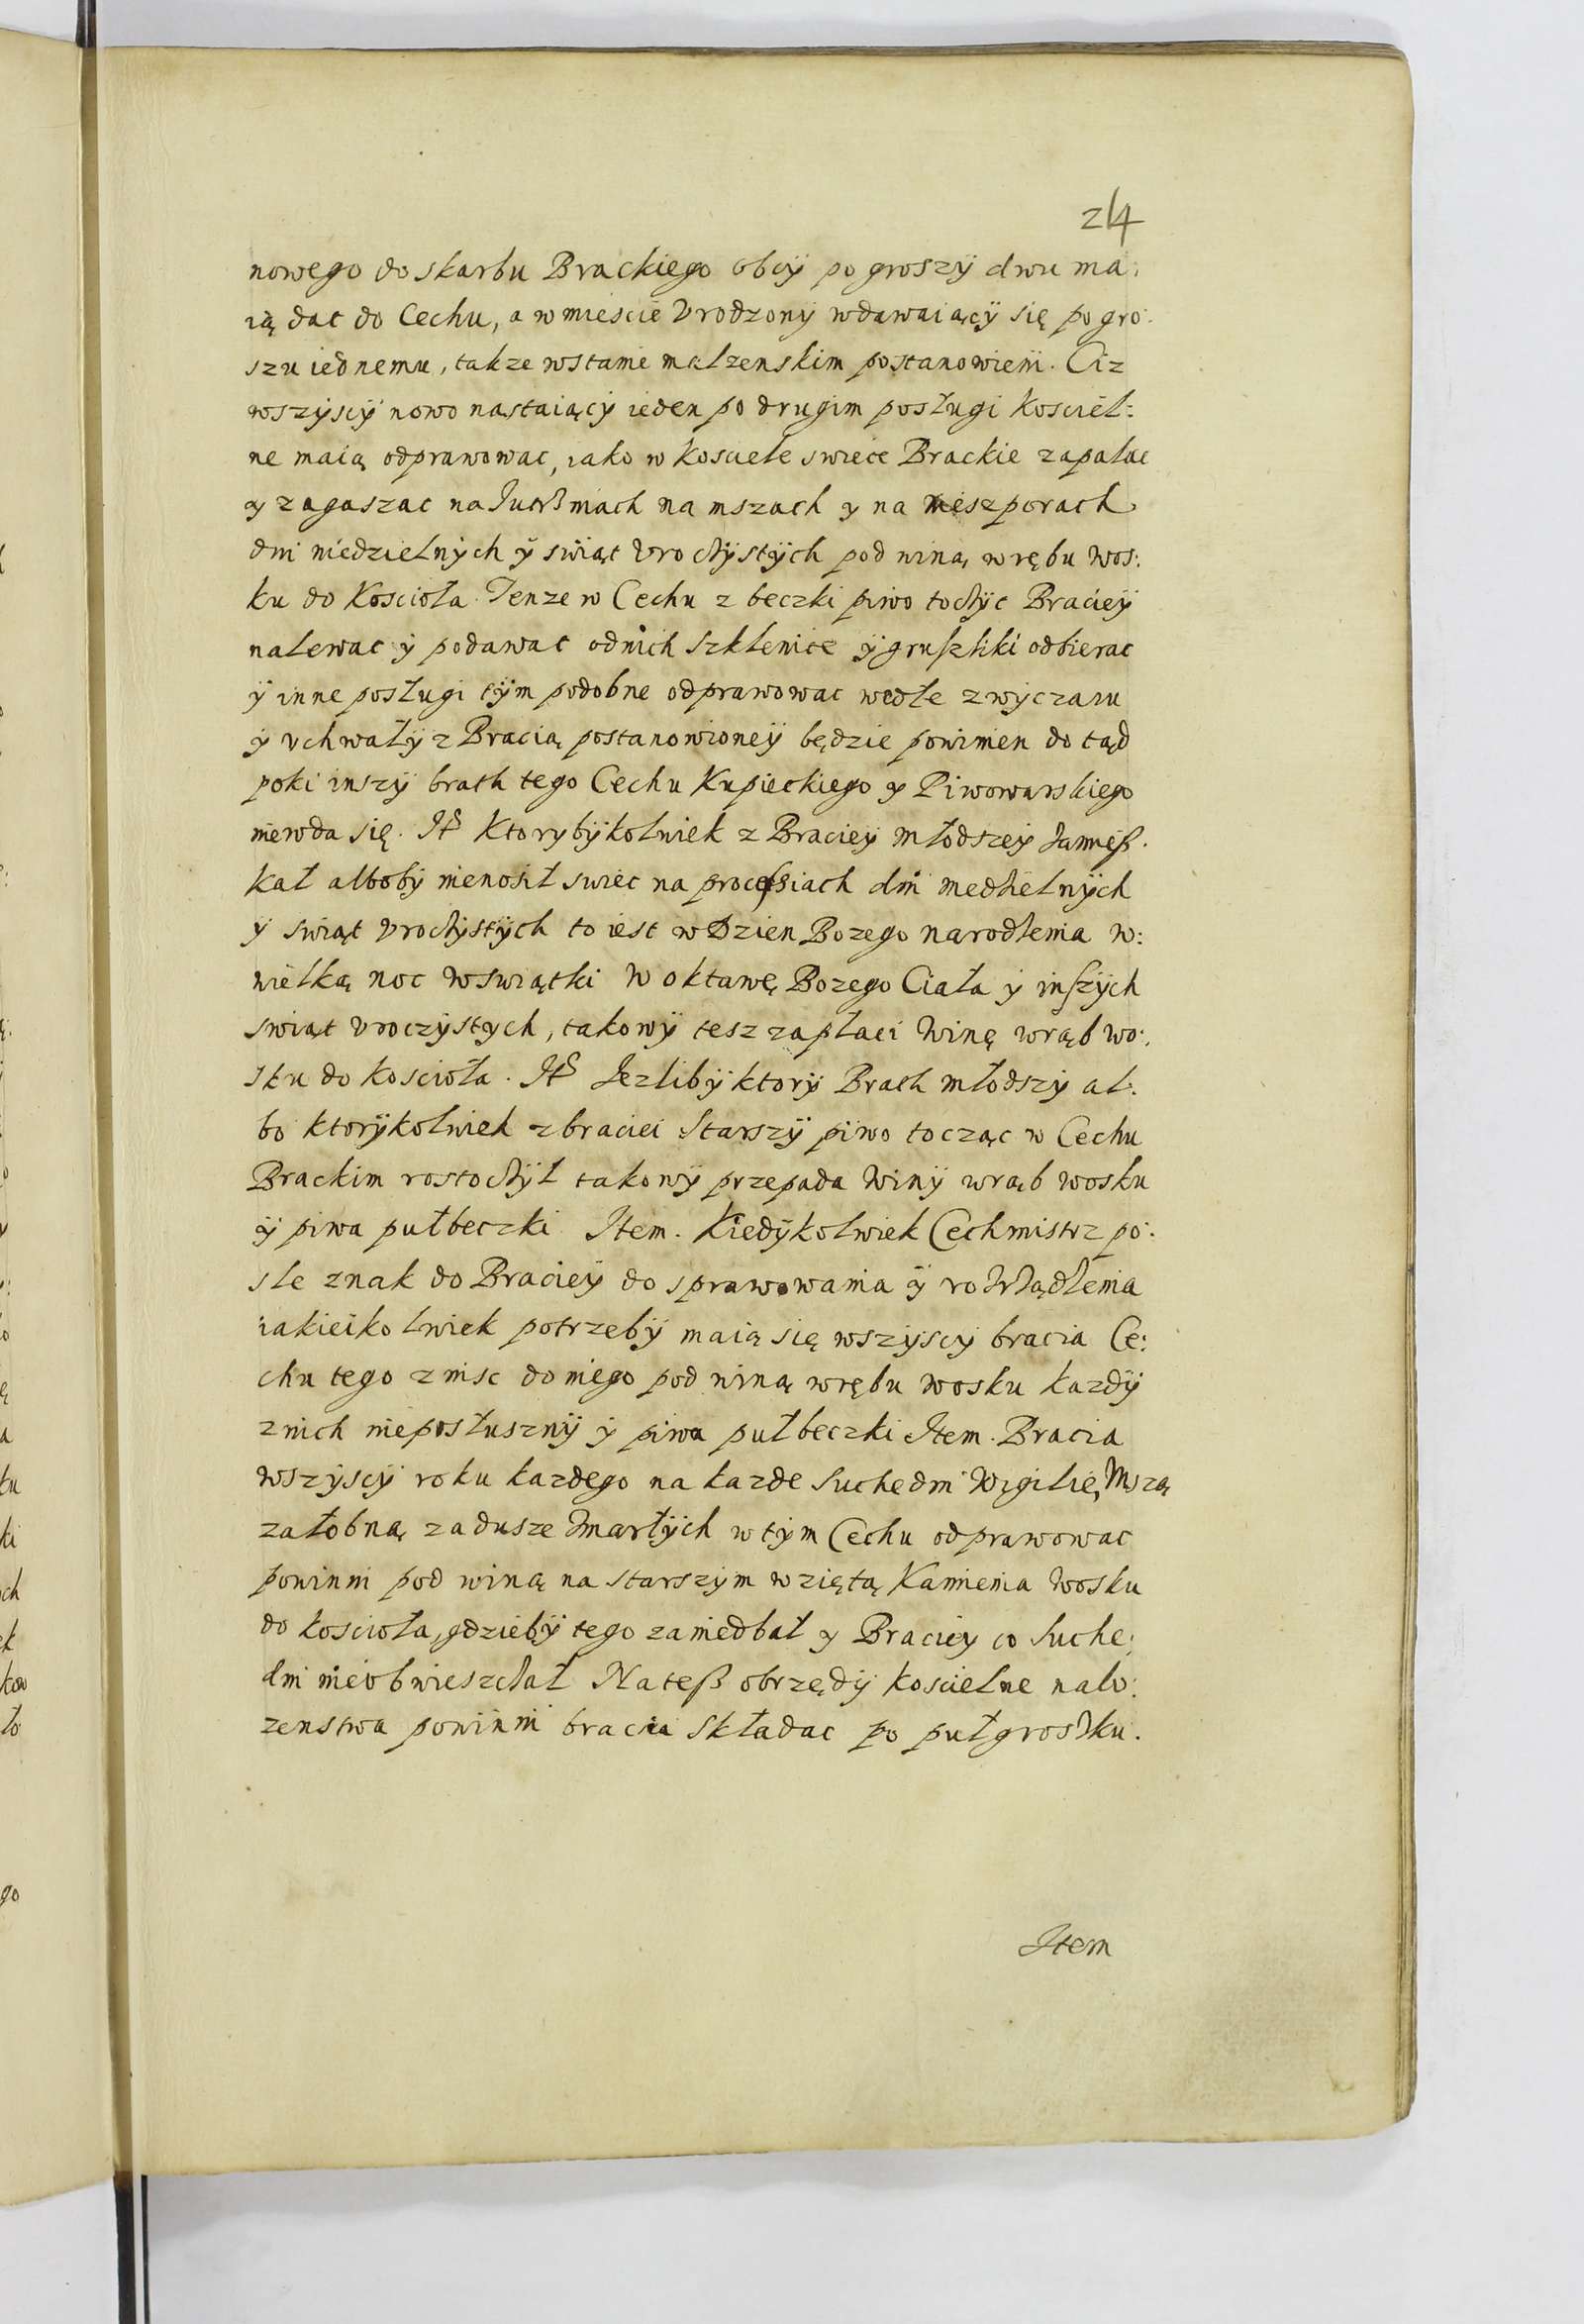 24
nowego do skarbu Brackiego obcÿ po groszÿ dwu ma:
ią dac do Cechu, a w miescie Vrodzonÿ wdawaiącÿ się po gro:
szu iednemu, takze wstanie malzenskim postanowieni. Ciz
wszÿscÿ nowo nastaiącÿ ieden po drugim posługi Koscièl:
ne maią odprawowac, iako w Kosciele swiece Brackie zapalac
y zagaszac na Jutrzniach na mszach y na nieszporach
dni niedzielnÿch ÿ swiąt Vroczÿstÿch pod winą wrębu wos:
ku do Koscioła. Tenze w Cechu z beczki piwo toczÿc Bracieÿ
nalewac ÿ podawac od nich szklenice ÿ gruszliki odbierac
ÿ inne posługi tÿm podobne odprawowac wedle zwÿczaiu
ÿ vchwałÿ z Bracią postanowioneÿ będzie powinien do tąd
poki inszÿ brath tego Cechu Kupieckiego y Piwowarskiego
niewda się. Itẽ Ktorybÿkolwiek z Bracieÿ młodszeÿ zamiesz:
kał alboby nienosił swiec na processiach dni niedzielnÿch
ÿ swiąt vroczÿstÿch to iest w Dzien Bozego narodzenia w:
wielką noc w swiątki w oktawę Bozego Ciała ÿ inszÿch
swiąt vroczystych, takowÿ tesz zapłaci winę wrąb wo:
sku do koscioła. Itẽ Jezlibÿ ktorÿ Brath młodszÿ al:
bo ktorÿkolwiek z braciei starszÿ piwo tocząc w Cechu
Brackim rostoczÿł takowÿ przepada winÿ wrąb wosku
ÿ piwa pułbeczki. Item. Kiedÿkolwiek Cechmistrz po:
sle znak do Bracieÿ do sprawowania ÿ rozrządzenia
iakieikolwiek potrzebÿ maią się wszÿscÿ bracia Ce:
chu tego znisc do niego pod winą wrębu wosku kazdÿ
z nich nieposłusznÿ ÿ piwa pułbeczki Item. Bracia
wszÿscÿ roku kazdego na kazde suchedni Wigilię, Mszą
załobną za dusze zmarłÿch w tÿm Cechu odprawowac
powinni pod winą na starszÿm wziętą Kamienia wosku
do koscioła, gdziebÿ tego zaniedbał y Bracieÿ co suche:
dni nieobwieszczał Na tesz obrzędÿ koscielne nabo:
zenstwa powinni bracia składac po pułgroszku.
Item